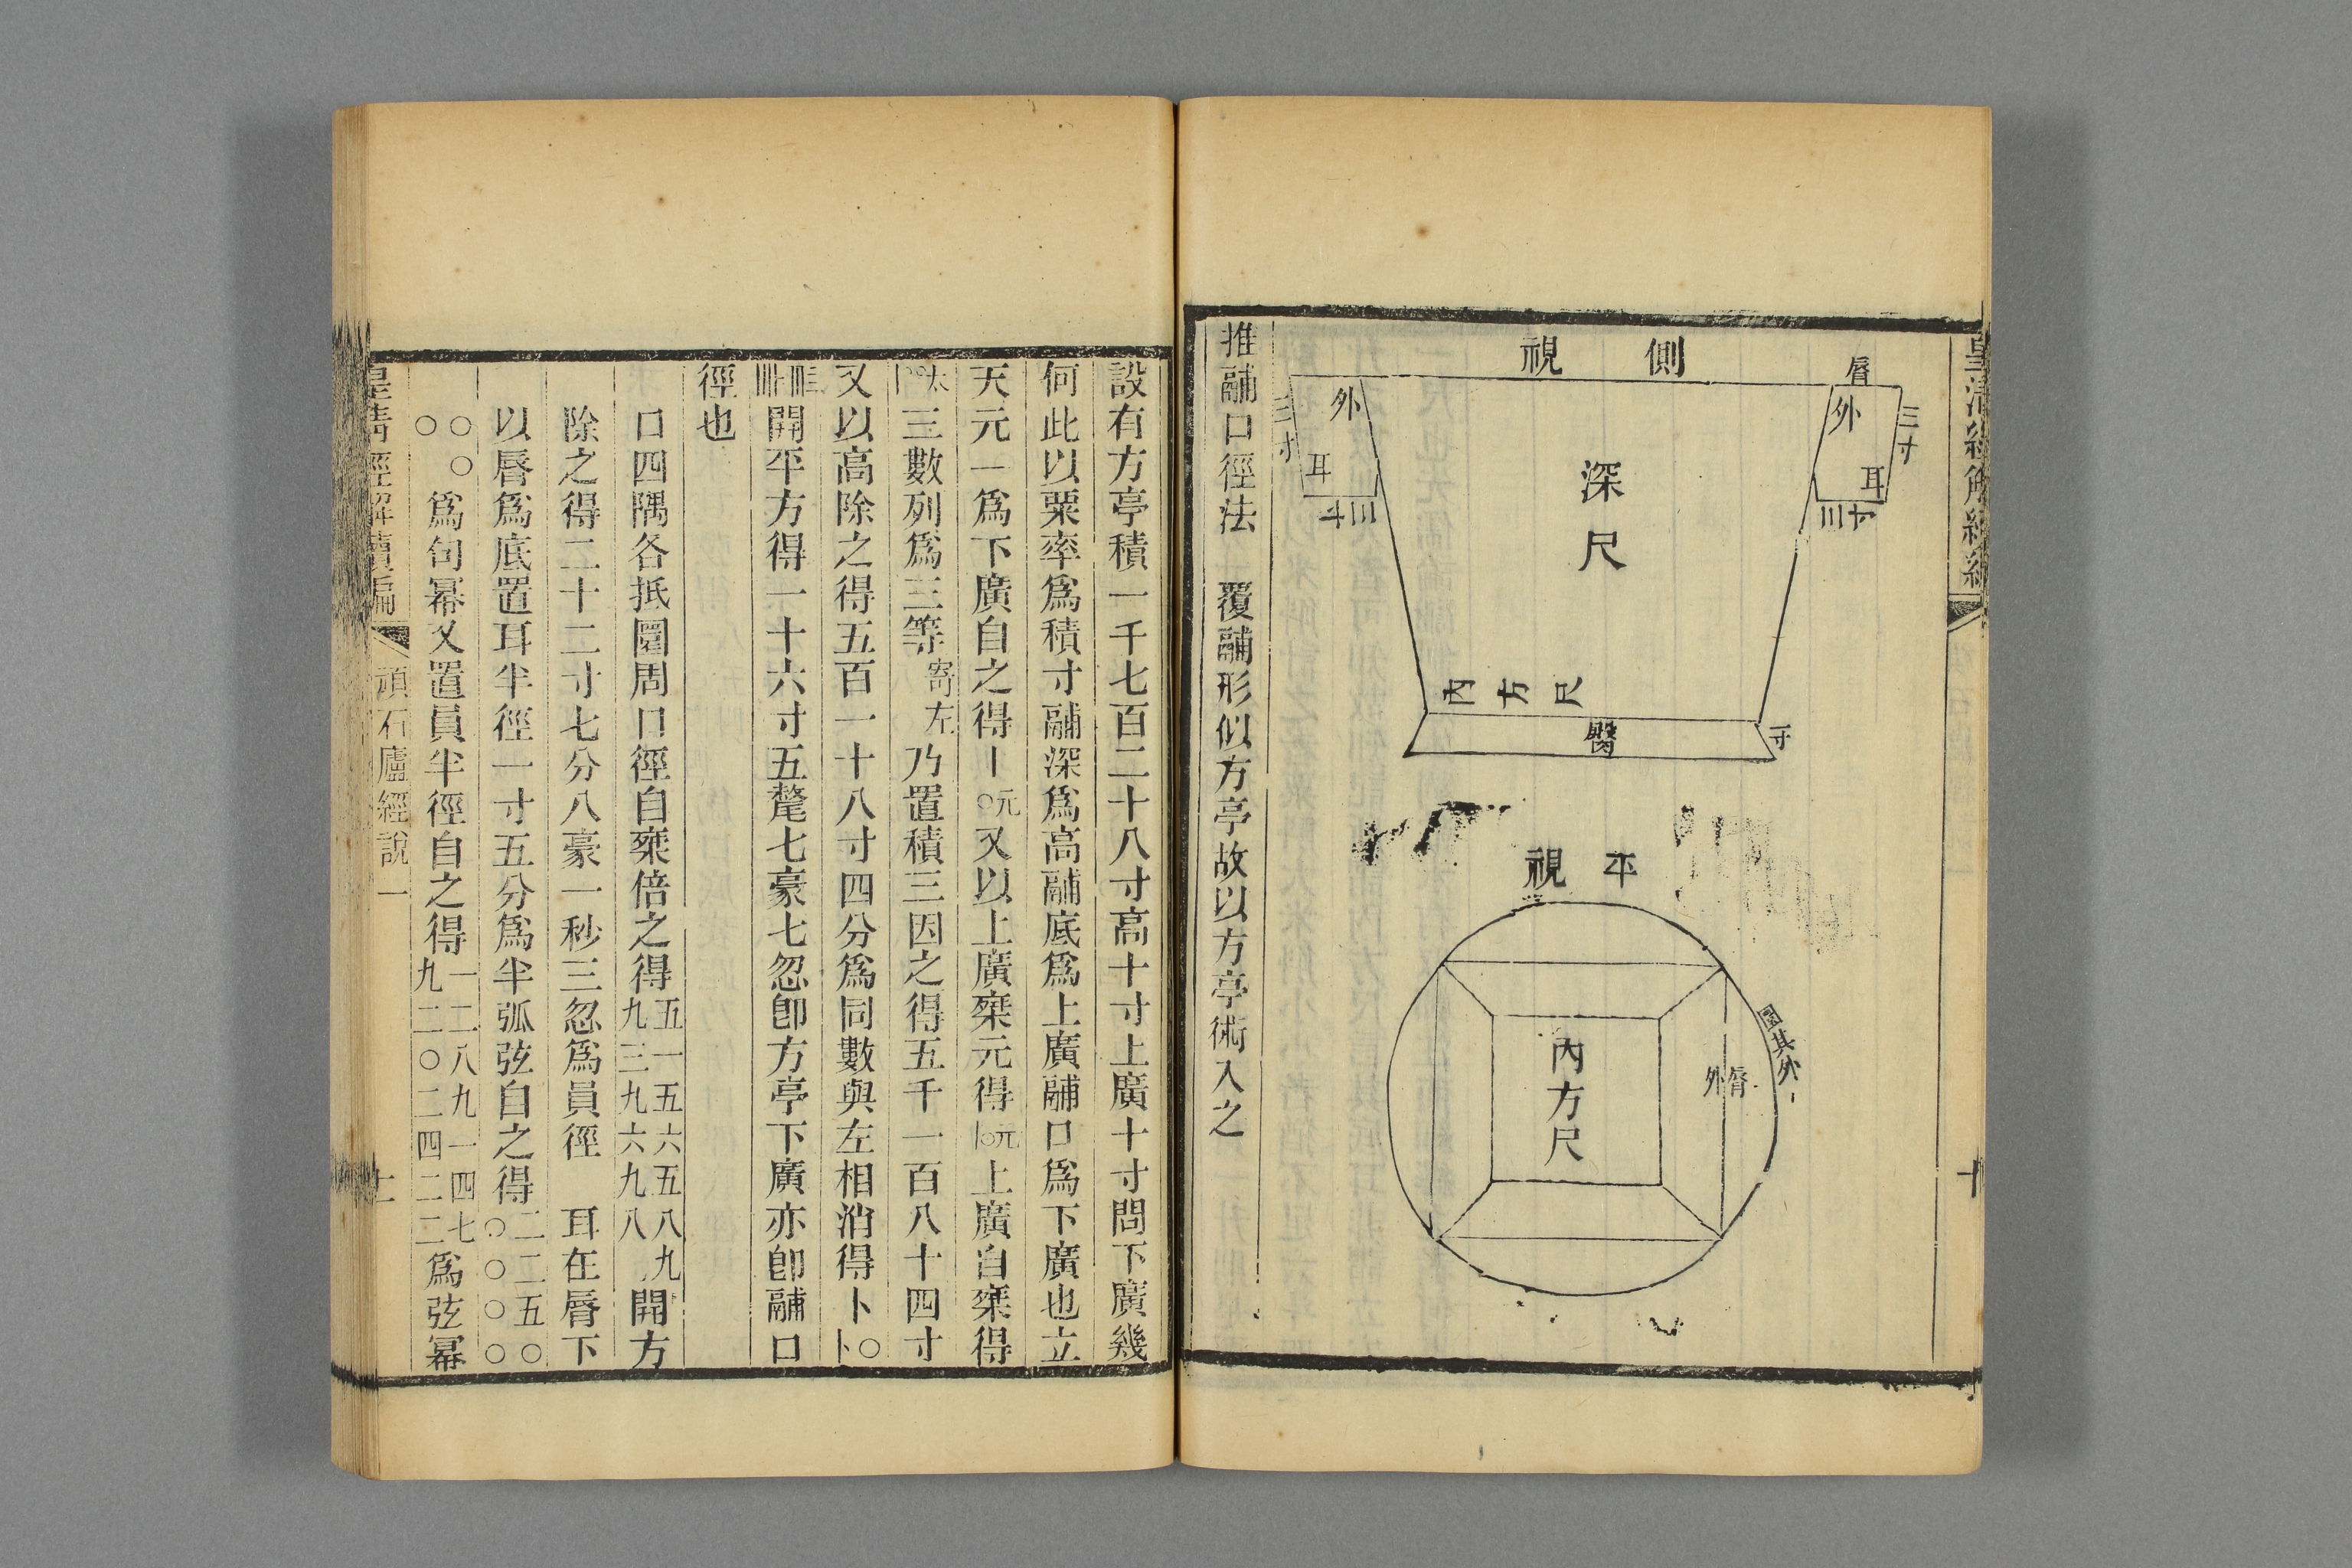 側視
脣
外
耳
三寸
三寸
外
耳
三寸
三寸
深尺
內方尺
臀
一寸
平視
內方尺
脣外
圜其外
十
推鬴口徑法 覆鬴形似方亭故以方亭術入之
設有方亭積一千七百二十八寸高十寸上廣十寸問下廣幾
何此以粟率爲積寸鬴深爲高鬴底爲上廣鬴口爲下廣也立
天元一爲下廣自之得〡○元又以上廣桒元得〡○元上廣自桒得
三數列爲三等寄左乃置積三因之得五千一百八十四寸
又以高除之得五百一十八寸四分爲同數與左相消得
開平方得一十六寸五氂七豪七忽卽方亭下廣亦卽鬴口
徑也
口四隅各抵圜周口徑自桒倍之得五一五六五八九九三九六九八開方
除之得二十二寸七分八豪一秒三忽爲員徑 耳在脣下
以脣爲底置耳半徑一寸五分爲半弧弦自之得二二五○○○○○
○○○爲句冪又置員半徑自之得一二八九一四七九二○二四二二爲弦冪
皇清經解續編
頑石廬經說一